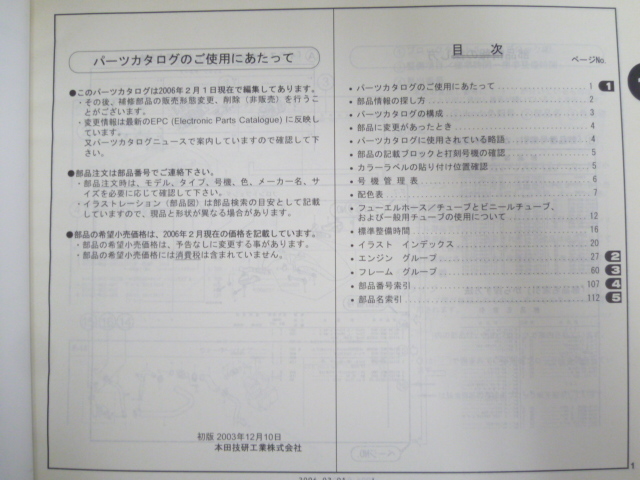 パーツカタログのご使用にあたって
●このパーツカタログは2006年2月1日現在で編集してあります。
・その後、補修部品の販売形態変更、削除（非販売）を行うことがございます。
・変更情報は最新のEPC（Electronic Parts Catalogue）に反映しています。
又パーツカタログニュースで案内していますので確認して下さい。
●部品注文は部品番号でご連絡下さい。
・部品注文時は、モデル、タイプ、号機、色、メーカー名、サイズを必要に応じて確認して下さい。
・イラストレーション（部品図）は部品検索の目安として記載していますので、現品と形状が異なる場合があります。
●部品の希望小売価格は、2006年2月現在の価格を記載しています。
・部品の希望小売価格は、予告なしに変更する事があります。
・部品の希望小売価格には消費税は含まれていません。
初版 2003年12月10日
本田技研工業株式会社
目 次
ページNo.
・パーツカタログのご使用にあたって 1 1
・部品情報の探し方 2
・パーツカタログの構成 3
・部品に変更があったとき 4
・パーツカタログに使用されている略語 4
・部品の記載ブロックと打刻号機の確認 5
・カラーラベルの貼り付け位置確認 5
・号 機 管 理 表 6
・配色表 7
・フューエルホース／チューブとビニールチューブ、
および一般用チューブの使用について 12
・標準整備時間 16
・イラスト インデックス 20
・エンジン グループ 27 2
・フレーム グループ 60 3
・部品番号索引 107 4
・部品名索引 112 5
1